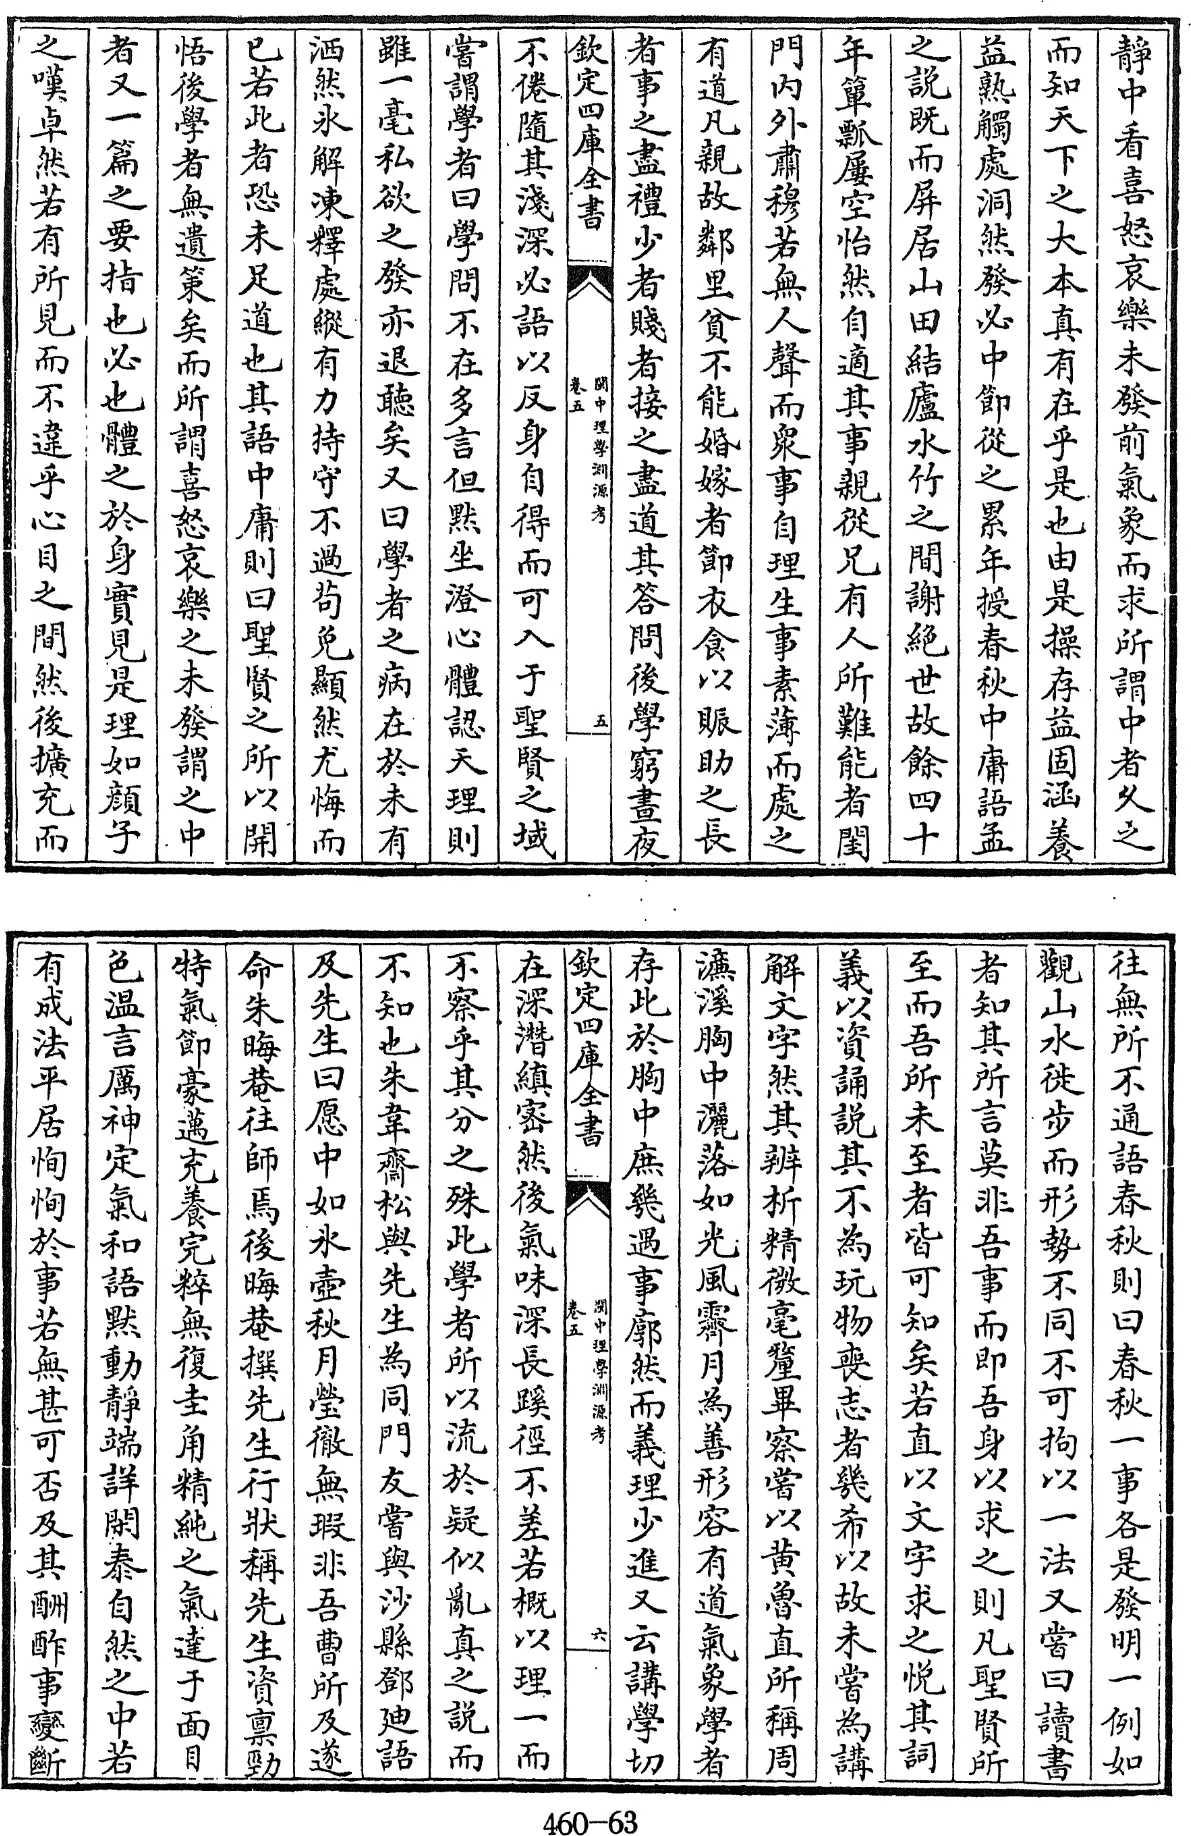 靜中看喜怒哀樂未發前氣象而求所謂中者久之
而知天下之大本真有在乎是也由是操存益固涵養
益熟觸處洞然發必中節從之累年授春秋中庸語孟
之説既而屏居山田結廬水竹之間謝絶世故餘四十
年簞瓢屢空怡然自適其事親從兄有人所難能者閨
門内外肅穆若無人聲而衆事自理生事素薄而處之
有道凡親故鄰里貧不能婚嫁者節衣食以賑助之長
者事之盡禮少者賤者接之盡道其答問後學窮晝夜
欽定四庫全書
閩中理學淵源考
卷五
五
不倦隨其淺深必語以反身自得而可入于聖賢之域
嘗謂學者曰學問不在多言但黙坐澄心體認天理則
雖一毫私欲之發亦退聽矣又曰學者之病在於未有
洒然氷解凍釋處縱有力持守不過茍免顯然尤悔而
已若此者恐未足道也其語中庸則曰聖賢之所以開
悟後學者無遺策矣而所謂喜怒哀樂之未發謂之中
者又一篇之要指也必也體之於身實見是理如顔子
之嘆卓然若有所見而不違乎心目之間然後擴充而
往無所不通語春秋則曰春秋一事各是發明一例如
觀山水徙步而形勢不同不可拘以一法又嘗曰讀書
者知其所言莫非吾事而即吾身以求之則凡聖賢所
至而吾所未至者皆可知矣若直以文字求之悦其詞
義以資誦説其不為玩物喪志者幾希以故未嘗為講
解文字然其辨析精微毫釐畢察嘗以黄魯直所稱周
濂溪胸中灑落如光風霽月為善形容有道氣象學者
存此於胸中庶幾遇事廓然而義理少進又云講學切
欽定四庫全書
閩中理學淵源考
卷五
六
在深潛縝密然後氣味深長蹊徑不差若概以理一而
不察乎其分之殊此學者所以流於疑似亂真之説而
不知也朱韋齋松與先生為同門友嘗與沙縣鄧廸語
及先生曰愿中如氷壺秋月瑩徹無瑕非吾曹所及遂
命朱晦菴往師焉後晦菴撰先生行狀稱先生資禀勁
特氣節豪邁充養完粹無復圭角精純之氣達于面目
色温言厲神定氣和語黙動靜端詳閑泰自然之中若
有成法平居恂恂於事若無甚可否及其酬酢事變斷
460-63